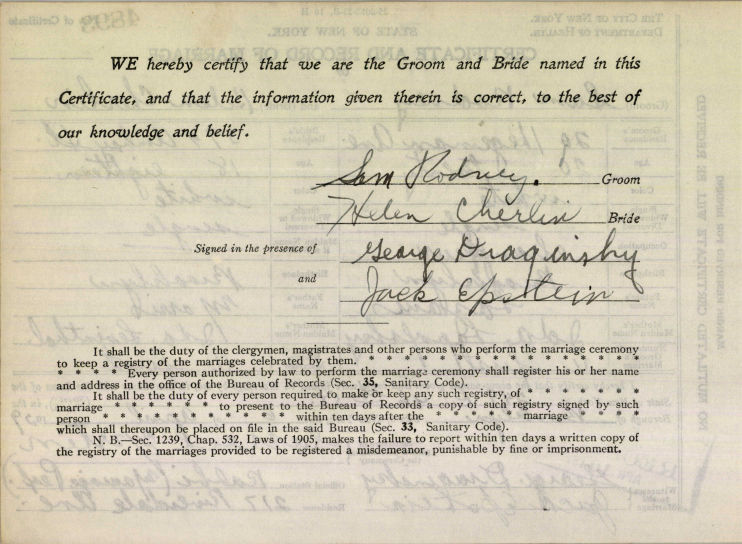 WE hereby certify that we are the Groom and Bride named in this
Certificate, and that the information given therein is correct, to the best of
our knowledge and belief.
Sam Rodney. Groom
Helen Cherlin Bride
Signed in the presence of George Draginsky
and Jack Epstein
It shall be the duty of the clergymen, magistrates and other persons who perform the marriage ceremony
to keep a registry of the marriages celebrated by them. * * * * * * * * * * * * * * * *
* * * * Every person authorized by law to perform the marriage ceremony shall register his or her name
and address in the office of the Bureau of Records (Sec. 35, Sanitary Code).
It shall be the duty of every person required to make or keep any such registry, of * * * * * * *
marriage * * * * * * to present to the Bureau of Records a copy of such registry signed by such
person * * * * * * * * * * * within ten days after the * * * * * marriage * * * *
which shall thereupon be placed on file in the said Bureau (Sec. 33, Sanitary Code).
N. B.—Sec. 1239, Chap. 532, Laws of 1905, makes the failure to report within ten days a written copy of
the registry of the marriages provided to be registered a misdemeanor, punishable by fine or imprisonment.